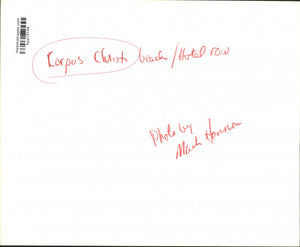 Corpus Christi beach / Hotel row
Photo by
Mark